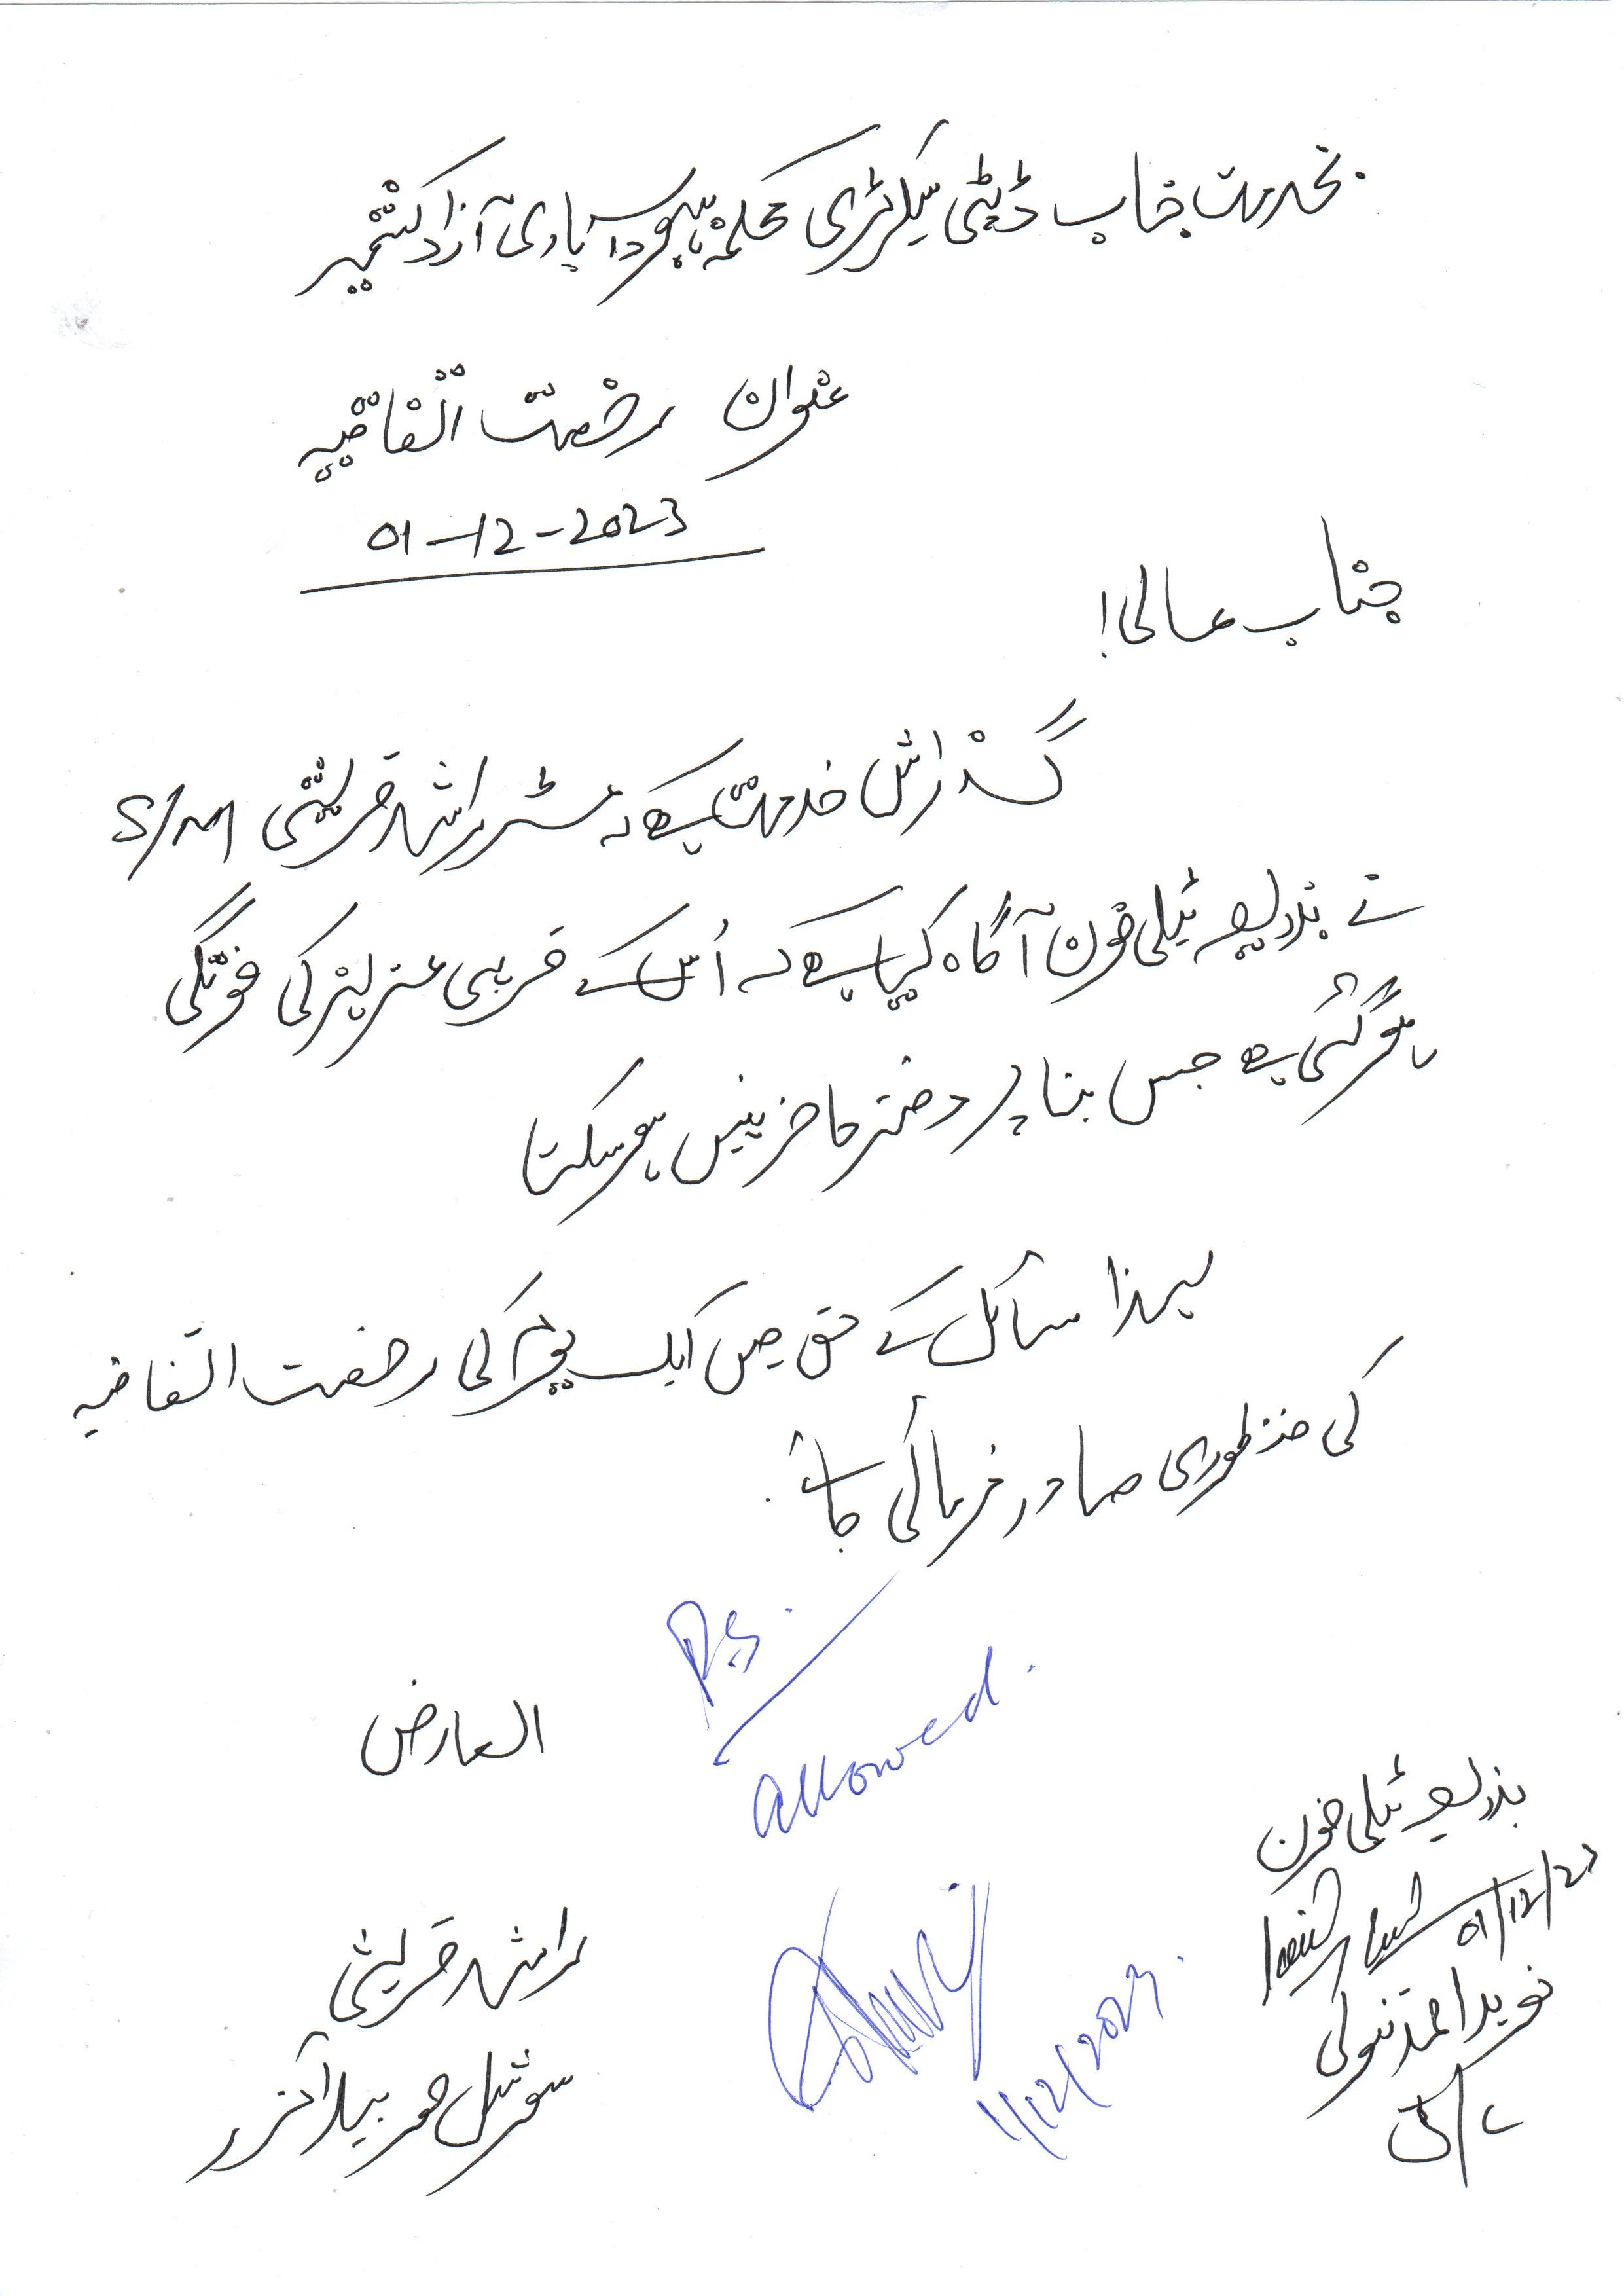 بخدمت جناب ڈپٹی سیکرٹری محکمہ بہبود آبادی آزاد کشمیر
عنوان رخصت اتفاقیہ
01-12-2023
جناب عالی!
گذارش خدمت ہے کہ مسٹر راشد قریشی S/M
نے بذریعہ ٹیلی فون آگاہ کیا ہے کہ اُس کے قریبی عزیز کی فوتگی
ہو گئی ہے جس بنا پر دفتر حاضر نہیں ہو سکتا
لہذا سائل کے حق میں ایک یوم کی رخصت اتفاقیہ
کی منظوری صادر فرمائی جائے.
P.S.
allowed.
العارض
بذریعہ ٹیلی فون
01/12/23
راشد قریشی
1/12/2023.
نوید احمد
سوشل موبیلائزر
J/C